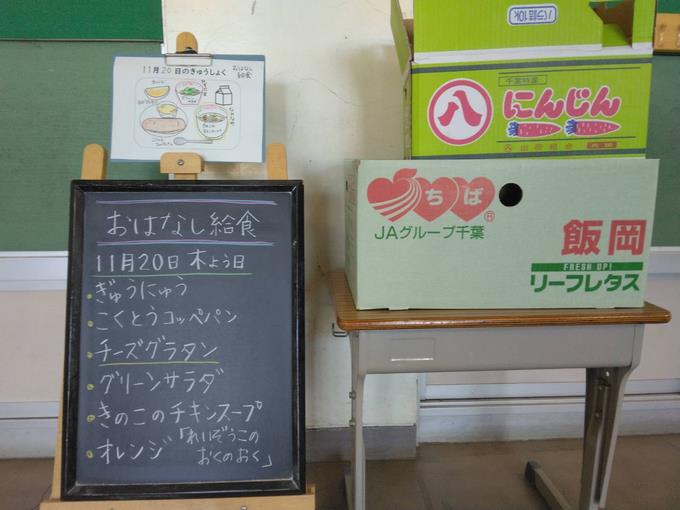 11月20日のきゅうしょく
おはなし
給食
おはなし給食
11月20日 木よう日
ぎゅうにゅう
こくとうコッペパン
チーズグラタン
グリーンサラダ
きのこのチキンスープ
オレンジ「れいぞうこの
おくのおく」
バラ詰10k
千葉特産
八
にんじん
出荷組合
ちば
JAグループ千葉
飯岡
FRESH UP!
リーフレタス